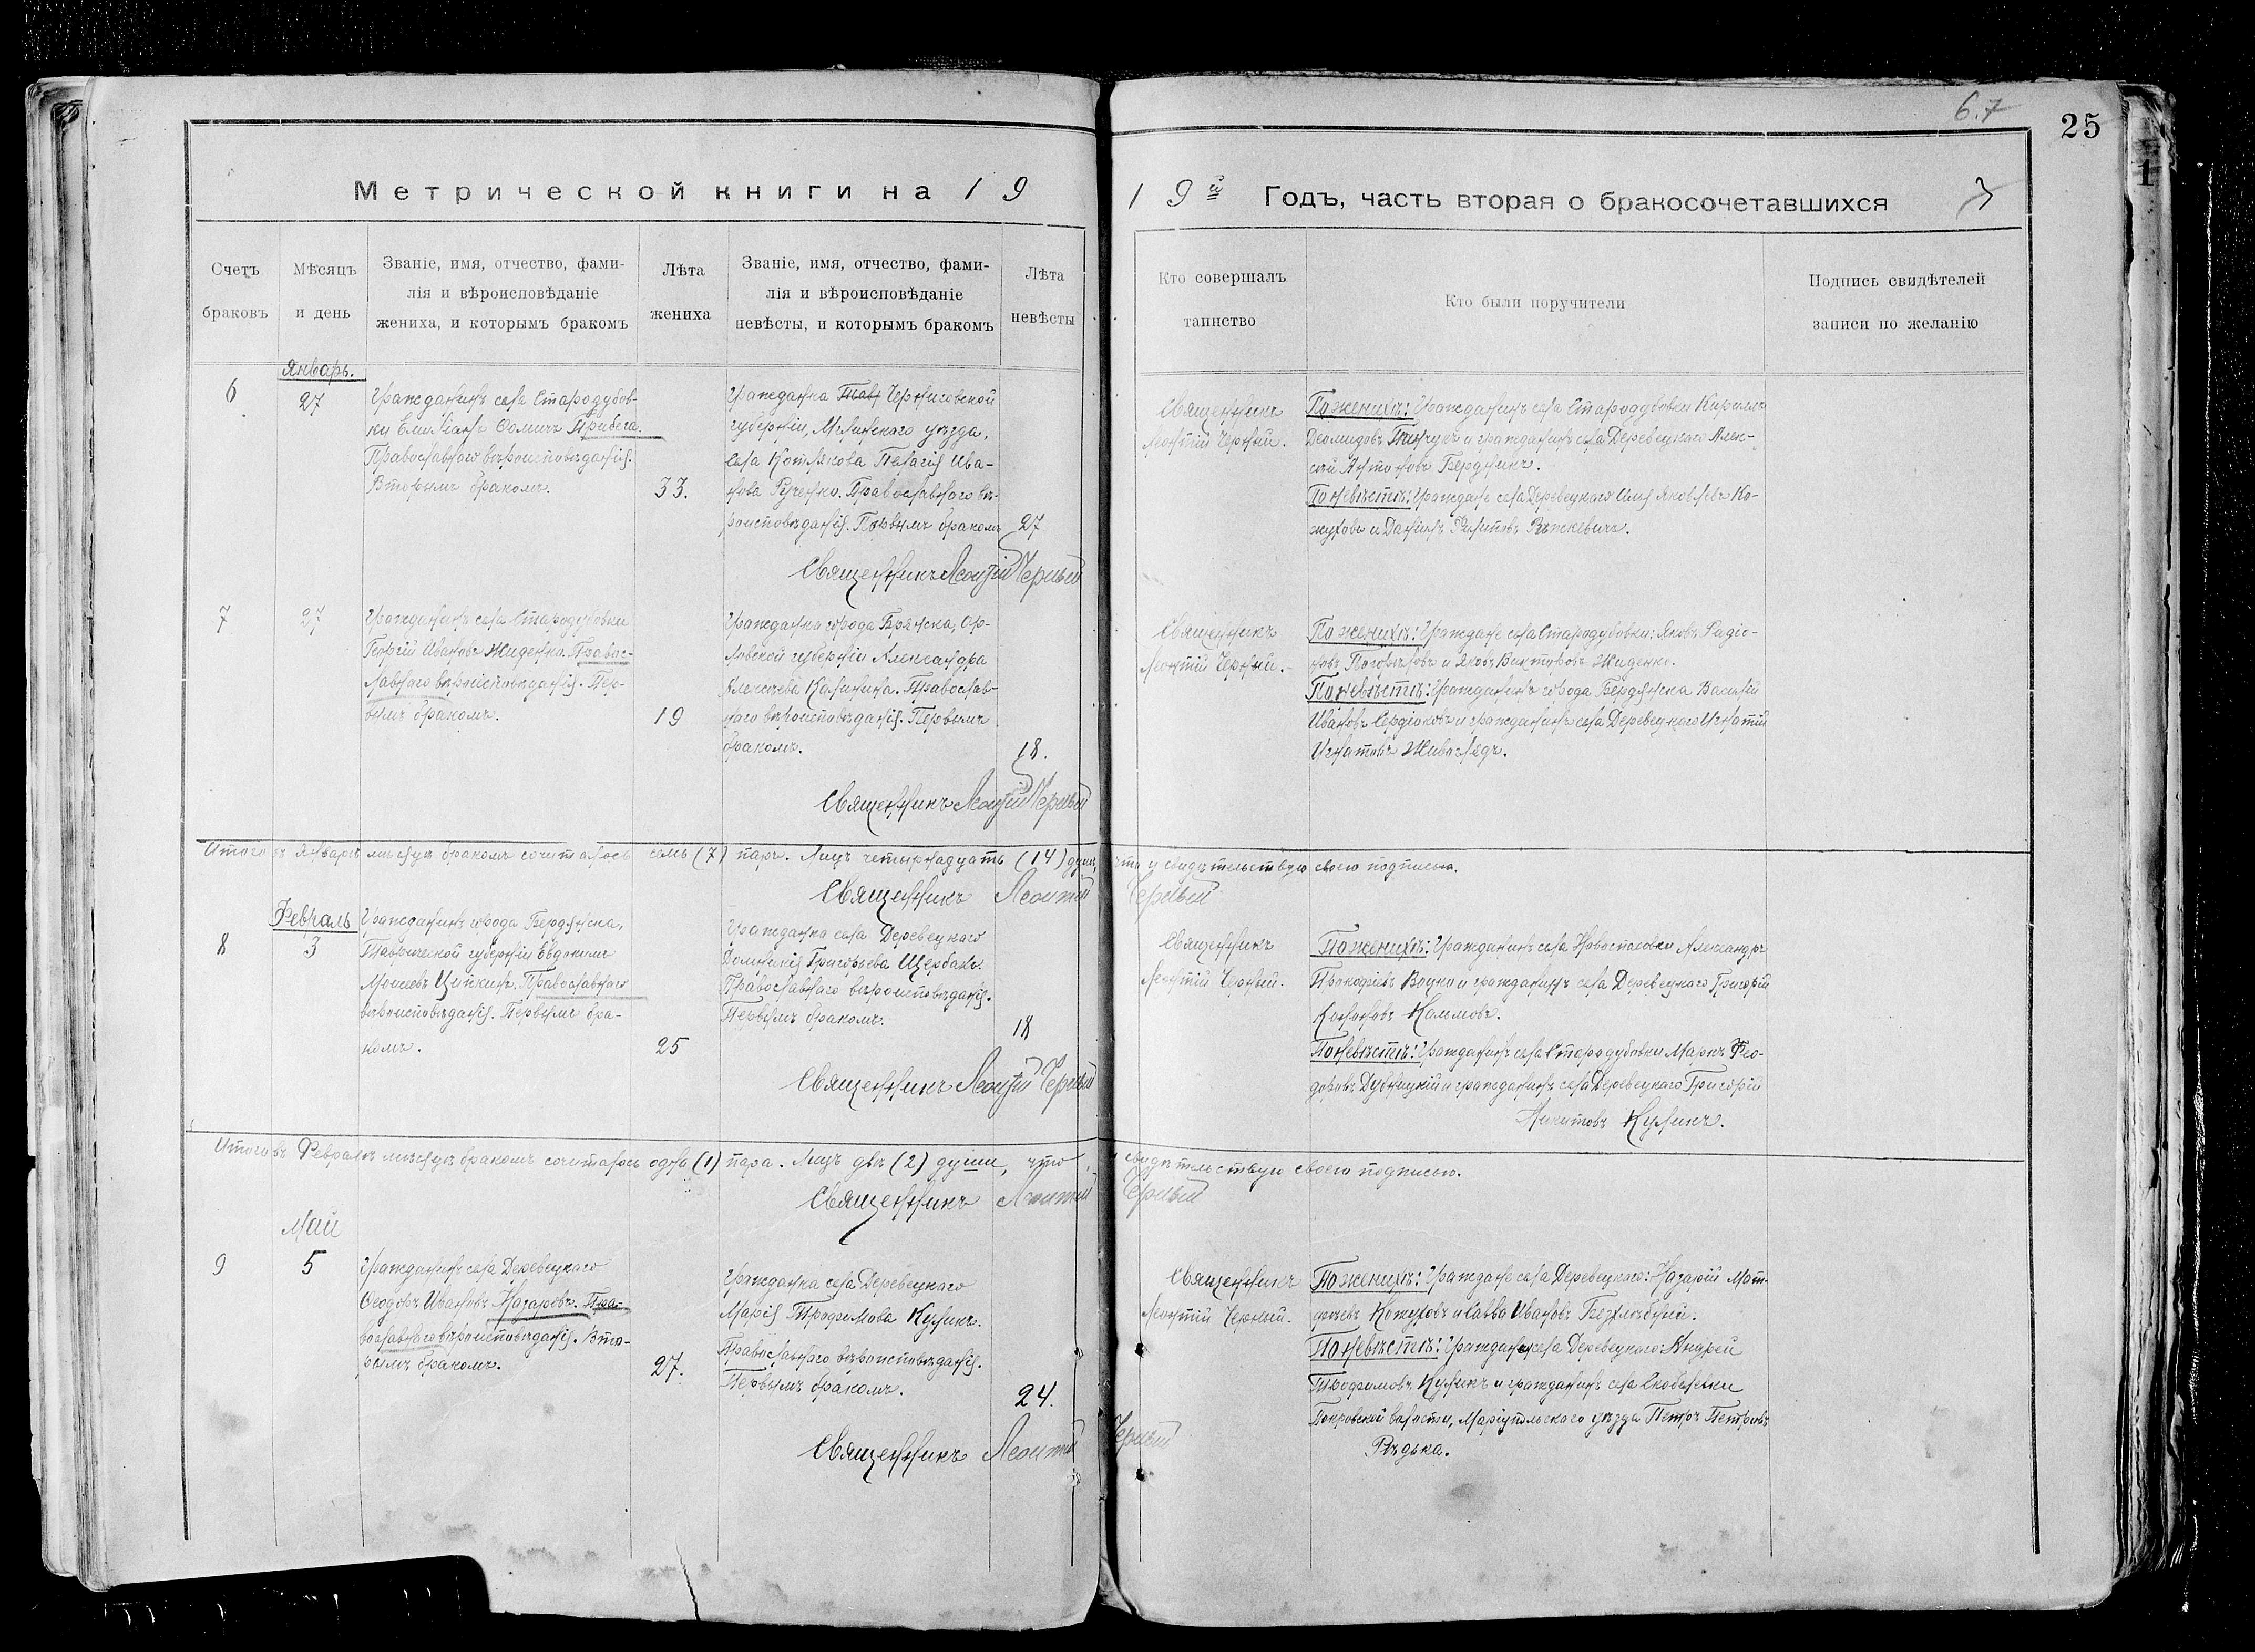 6.7
25
Метрической книги на 19
19й Годъ, часть вторая о бракосочетавшихся
3
Счетъ браковъ
Мѣсяцъ и день
Званіе, имя, отчество, фами-
лія и вѣроисповѣданіе
жениха, и которымъ бракомъ
Лѣта жениха
Званіе, имя, отчество, фами-
лія и вѣроисповѣданіе
невѣсты, и которымъ бракомъ
Лѣта невѣсты
Кто совершалъ
таинство
Кто были поручители
Подпись свидѣтелей
записи по желанію
Январь.
6
27
Гражданинъ села Стародубов-
ки Емиліанъ Ѳомичъ Прибега.
Православнаго вѣроисповѣданія.
Вторымъ бракомъ.
33.
Гражданка Черниговской
губерніи, Мглинскаго уѣзда,
села Котлякова Пелагія Ива-
нова Рученко. Православнаго вѣ-
роисповѣданія. Первымъ бракомъ
27
Священникъ Леонтій Черный
Священникъ
Леонтій Черный.
По женихѣ: Гражданинъ села Стародубовки Кириллъ
Діомидовъ Пинчукъ и гражданинъ села Деревецкаго Алек-
сѣй Антоновъ Бердникъ.
По невѣстѣ: Граждане села Деревецкаго Илія Яковлевъ Ко-
жуховъ и Даніилъ Филиповъ Вѣткевичъ.
7
27
Гражданинъ села Стародубовки
Георгій Ивановъ Жиденко. Правос-
лавнаго вѣроисповѣданія. Пер-
вымъ бракомъ.
19
Гражданка города Брянска, Ор-
ловской губерніи Александра
Алексѣева Калинина. Православ-
наго вѣроисповѣданія. Первымъ
бракомъ.
18.
Священникъ Леонтій Черный
Священникъ
Леонтій Черный.
По женихѣ: Граждане села Стародубовки: Яковъ Радіо-
новъ Погорѣловъ и Яковъ Викторовъ Жиденко.
По невѣстѣ: Гражданинъ города Бердянска Василій
Ивановъ Сердюковъ и гражданинъ села Деревецкаго Игнатій
Игнатовъ Живогледъ.
Итого въ Январѣ мѣсяцѣ бракомъ сочиталось семь (7) паръ. Лицъ четырнадцать (14) душъ, что и свидѣтельствую своею подписью.
Священникъ Леонтій Черный
Февраль
8
3
Гражданинъ города Бердянска,
Таврической губерніи Евдокимъ
Моисеевъ Ципкинъ. Православнаго
вѣроисповѣданія. Первымъ бра-
комъ.
25
Гражданка села Деревецкаго
Домникія Григорьева Щербакъ.
Православнаго вѣроисповѣданія.
Первымъ бракомъ.
18
Священникъ Леонтій Черный
Священникъ
Леонтій Черный.
По женихѣ: Гражданинъ села Новоспасовки Александръ
Прокофіевъ Воцко и гражданинъ села Деревецкаго Григорій
Кононовъ Коммовъ.
По невѣстѣ: Гражданинъ села Стародубовки Маркъ Фео-
доровъ Дубницкій и гражданинъ села Деревецкаго Григорій
Никитовъ Куликъ.
Итого въ Февралѣ мѣсяцѣ бракомъ сочиталось одна (1) пара. Лицъ двѣ (2) души, что и свидѣтельствую своею подписью.
Священникъ Леонтій Черный
Май
9
5
Гражданинъ села Деревецкаго
Ѳеодоръ Ивановъ Назаровъ. Пра-
вославнаго вѣроисповѣданія. Вто-
рымъ бракомъ.
27.
Гражданка села Деревецкаго
Марія Трофимова Куликъ.
Православнаго вѣроисповѣданія.
Первымъ бракомъ.
24.
Священникъ Леонтій Черный
Священникъ
Леонтій Черный.
По женихѣ: Граждане села Деревецкаго: Назарій Мат-
фѣевъ Кожуховъ и Савва Ивановъ Безхлѣбный.
По невѣстѣ: Гражданинъ села Деревецкаго Андрей
Трофимовъ Куликъ и гражданинъ села Скобелевки
Покровской волости, Маріупольскаго уѣзда Петръ Петровъ
Рѣдька.